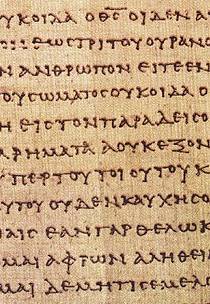 ΥΚΟΙΔΑ ΟΘϹ ΟΙΔΕΝ Α
ΕΩϹΤΡΙΤΟΥΟΥΡΑΝΟ
Ν ΑΝΘΡΩΠΟΝ ΕΙΤΕΕΝ
ΟΥϹΩΜΑΤΟϹΟΥΚΟΙΔΑ Ο
Η ΕΙϹΤΟΝΠΑΡΑΔΕΙϹΟ
ΑΡΗΜΑΤΑ ΑΟΥΚΕΞΟΝ
ΥΠΕΡΤΟΥΤΟΙΟΥΤΟΥΚ
ΑΥΤΟΥΟΥΔΕΝΚΑΥΧΗϹΟ
ΑΙϹ ΕΑΝΓΑΡΘΕΛΩΚ
ΜΑΙ ΑΦΡΩΝ ΑΛΗΘΕΙΑ
ΜΑΙ ΔΕΜΗΤΙϹΕΜΕΛΟ